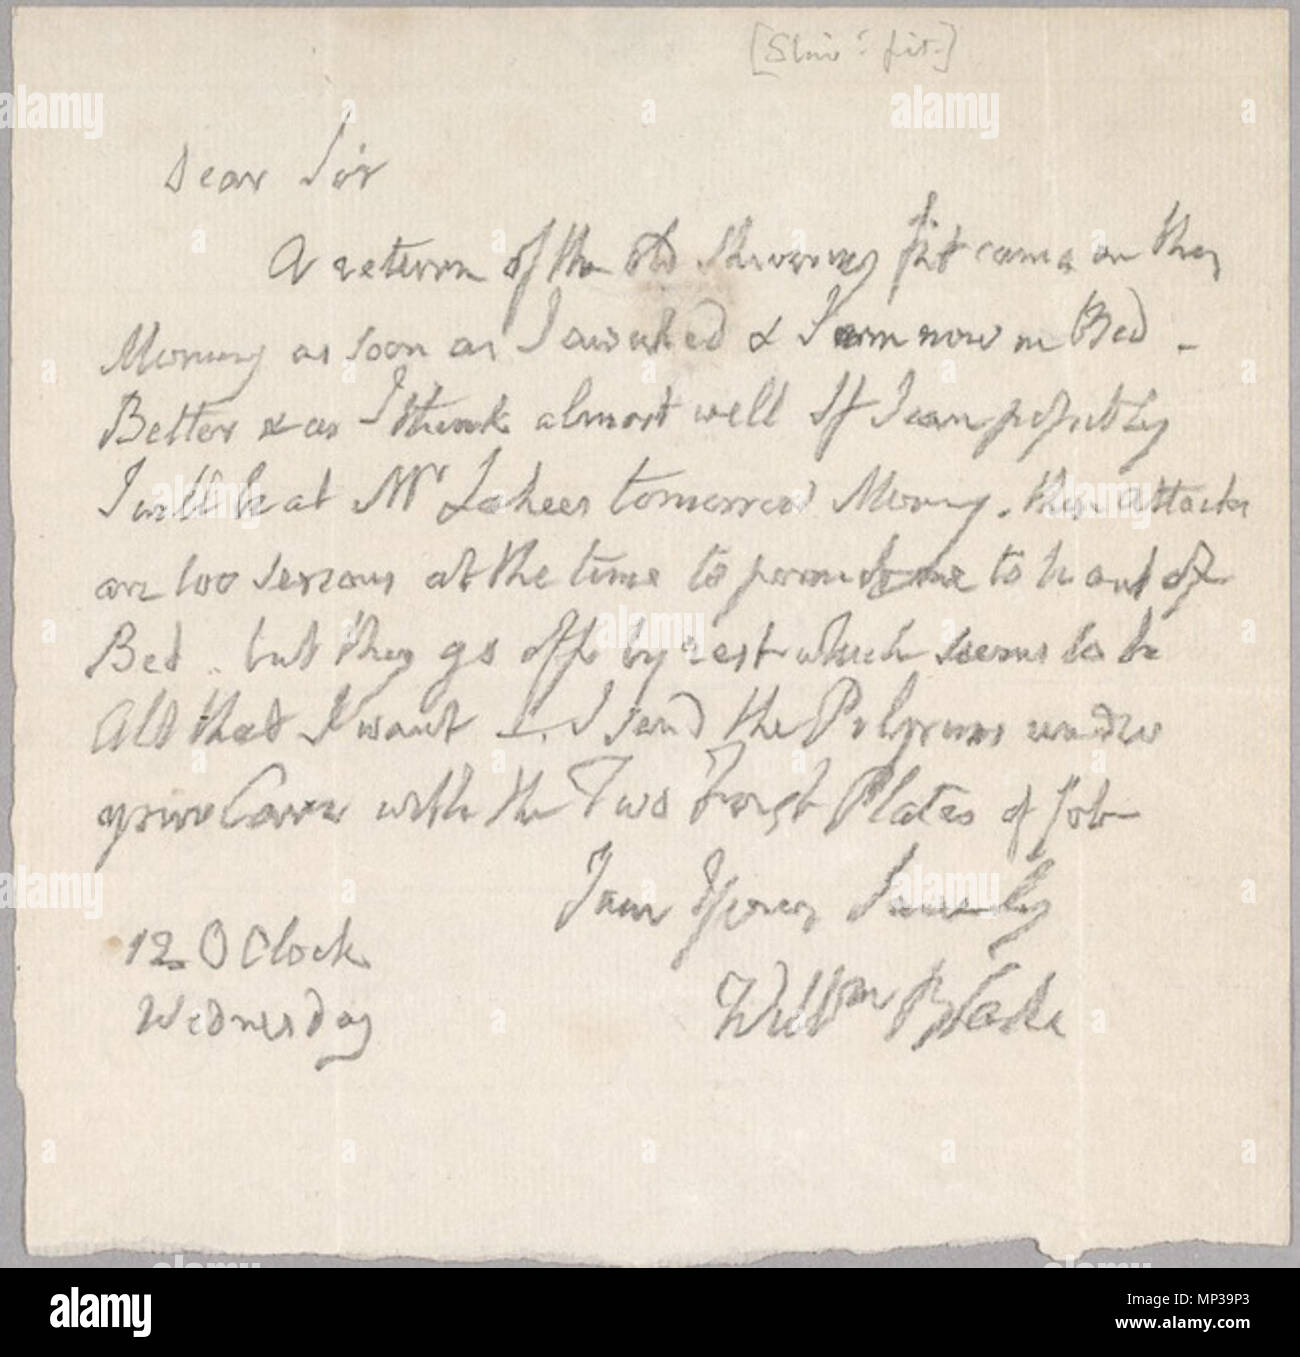 [Shiv.g fit.]
Dear Sir
A return of the old Shivering fit came on this
Morning as soon as I awaked & I am now in Bed -
Better & as I think almost well If I can possibly
I will be at Mr Lahees tomorrow Morning. these attacks
are too serious at the time to permit me to be out of
Bed. but they go off by rest which seems to be
All that I want -. I send the Pilgrims under
your Cover with the Two First Plates of Job
I am Yours Sincerely
12 O Clock
Willm Blake
Wednesday
alamy
Image ID: MP39P3
www.alamy.com